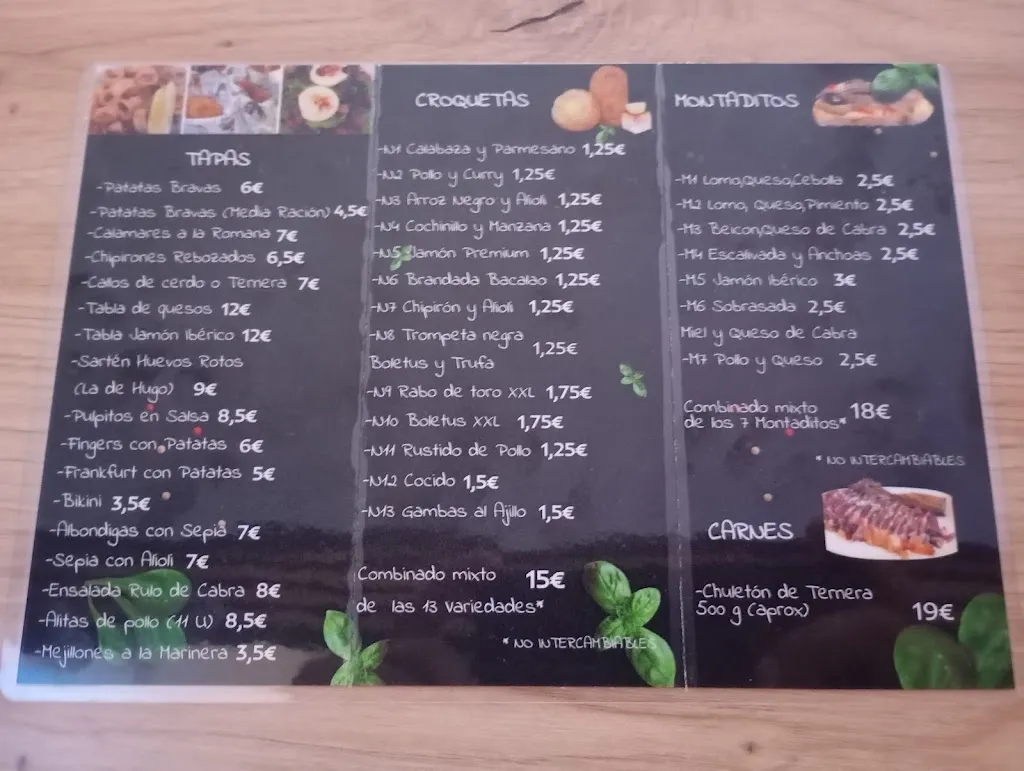 TAPAS
-Patatas Bravas 6€
-Patatas Bravas (Media Ración) 4,5€
-Calamares a la Romana 7€
-Chipirones Rebozados 6,5€
-Callos de cerdo o Ternera 7€
-Tabla de quesos 12€
-Tabla Jamón Ibérico 12€
-Sartén Huevos Rotos
(La de Hugo) 9€
-Pulpitos en Salsa 8,5€
-Fingers con Patatas 6€
-Frankfurt con Patatas 5€
-Bikini 3,5€
-Albondigas con Sepia 7€
-Sepia con Alioli 7€
-Ensalada Rulo de Cabra 8€
-Alitas de pollo (11 U) 8,5€
-Mejillones a la Marinera 3,5€
CROQUETAS
-N1 Calabaza y Parmesano 1,25€
-N2 Pollo y Curry 1,25€
-N3 Arroz Negro y Alioli 1,25€
-N4 Cochinillo y Manzana 1,25€
-N5 Jamón Premium 1,25€
-N6 Brandada Bacalao 1,25€
-N7 Chipirón y Alioli 1,25€
-N8 Trompeta negra
Boletus y Trufa 1,25€
-N9 Rabo de toro XXL 1,75€
-N10 Boletus XXL 1,75€
-N11 Rustido de Pollo 1,25€
-N12 Cocido 1,5€
-N13 Gambas al Ajillo 1,5€
Combinado mixto 15€
de las 13 variedades*
* NO INTERCAMBIABLES
MONTADITOS
-M1 Lomo,Queso,Cebolla 2,5€
-M2 Lomo, Queso,Pimiento 2,5€
-M3 Beicon,Queso de Cabra 2,5€
-M4 Escalivada y Anchoas 2,5€
-M5 Jamón Ibérico 3€
-M6 Sobrasada 2,5€
Miel y Queso de Cabra
-M7 Pollo y Queso 2,5€
Combinado mixto 18€
de los 7 Montaditos*
* NO INTERCAMBIABLES
CARNES
-Chuletón de Ternera
500 g (aprox) 19€